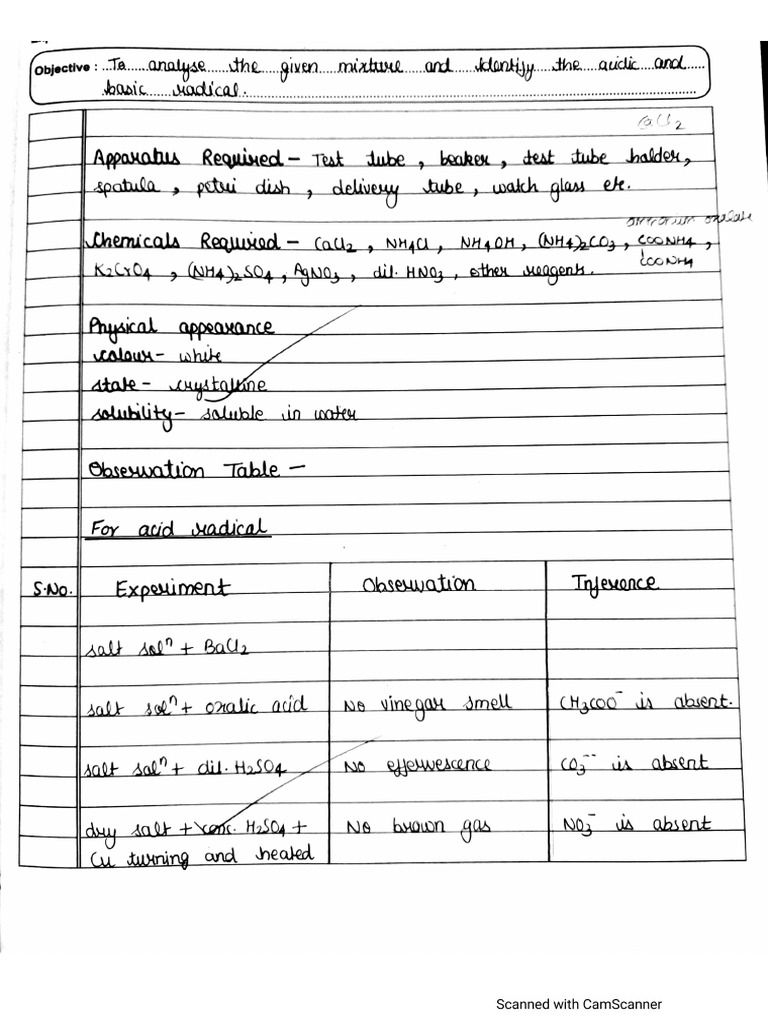 Objective : To analyse the given mixture and identify the acidic and
basic radical.
CaCl2
Apparatus Required - Test tube, beaker, test tube holder,
spatula, petri dish, delivery tube, watch glass etc.
ammonium oxalate
Chemicals Required - CaCl2, NH4Cl, NH4OH, (NH4)2CO3, COONH4,
COONH4
K2CrO4, (NH4)2SO4, AgNO3, dil. HNO3, other reagents.
Physical appearance
colour - white
state - crystalline
solubility - soluble in water
Observation Table -
For acid radical
S.No. Experiment Observation Inference
salt solⁿ + BaCl2
salt solⁿ + oxalic acid No vinegar smell CH3COO⁻ is absent.
salt solⁿ + dil. H2SO4 No effervescence CO3⁻⁻ is absent
dry salt + conc. H2SO4 + No brown gas NO3⁻ is absent
Cu turning and heated
Scanned with CamScanner